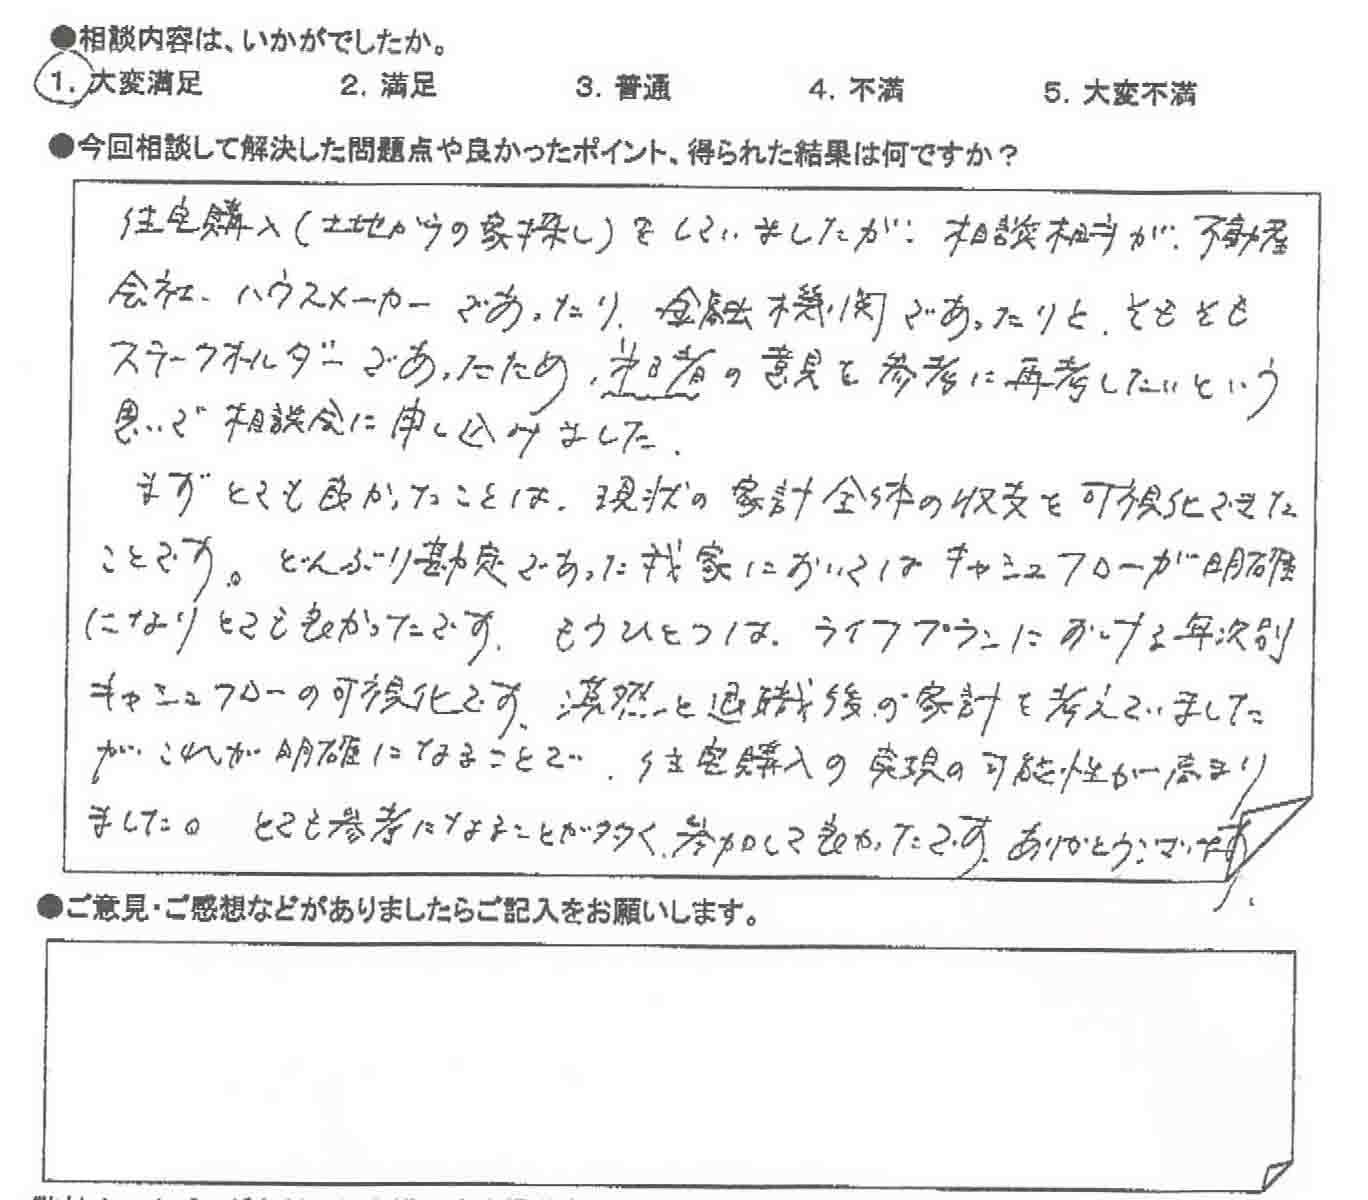 ●相談内容は、いかがでしたか。
1. 大変満足 2. 満足 3. 普通 4. 不満 5. 大変不満
●今回相談して解決した問題点や良かったポイント、得られた結果は何ですか？
住宅購入(土地からの家探し)をしていましたが、相談相手が、不動産
会社、ハウスメーカーであったり、金融機関であったりと、そもそも
ステークホルダーであったため、の意見を参考に再考したいという
思いで相談会に申し込みました。
まずとても良かったことは、現状の家計全体の収支を可視化できた
ことです。どんぶり勘定であった我家においてはキャシュフローが明確
になりとても良かったです。もうひとつは、ライフプランにおける年次別
キャシュフローの可視化です。漠然と退職後の家計を考えていました
が、これが明確になることで、住宅購入の実現の可能性が高まり
ました。とても参考になることが多く、参加して良かったです。ありがとうございます。
●ご意見・ご感想などがありましたらご記入をお願いします。